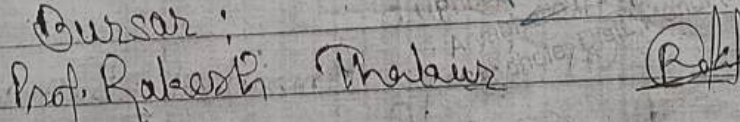 Bursar :
Prof. Rakesh Thakur